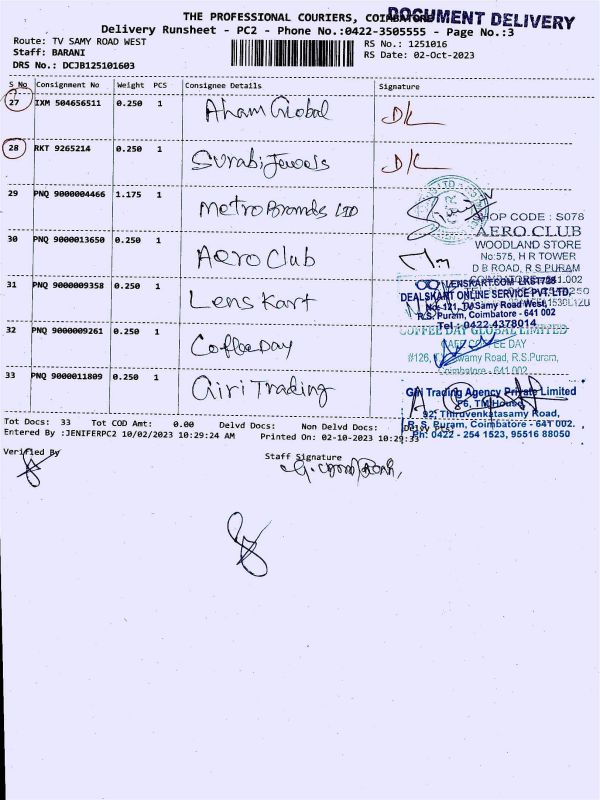 THE PROFESSIONAL COURIERS, COIMBATORE
DOCUMENT DELIVERY
Delivery Runsheet - PC2 - Phone No.:0422-3505555 - Page No.:3
Route: TV SAMY ROAD WEST
RS No.: 1251016
Staff: BARANI
RS Date: 02-Oct-2023
DRS No.: DCJB125101603
S No Consignment No Weight PCS Consignee Details Signature
27 IXM 504656511 0.250 1 Aham Global D/L
28 RKT 9265214 0.250 1 Surabi Jewels D/L
29 PNQ 9000004466 1.175 1 Metro Brands LTD
SHOP CODE : S078
AERO CLUB
WOODLAND STORE
No:575, H R TOWER
D B ROAD, R S PURAM
COIMBATORE-641 002
30 PNQ 9000013650 0.250 1 Aero Club
31 PNQ 9000009358 0.250 1 Lens Kart
LENSKART.COM
DEALSKART ONLINE SERVICE PVT. LTD.
No-121, TV Samy Road West,
R.S. Puram, Coimbatore - 641 002
Tel : 0422 4378014
32 PNQ 9000009261 0.250 1 Coffee Day
COFFEE DAY GLOBAL LIMITED
CAFE COFFEE DAY
#126, Swamy Road, R.S.Puram,
Coimbatore - 641 002
33 PNQ 9000011809 0.250 1 Giri Trading
Giri Trading Agency Private Limited
TM House
92, Thiruvenkatasamy Road,
R. S. Puram, Coimbatore - 641 002.
Ph: 0422 - 254 1523, 95516 88050
Tot Docs: 33 Tot COD Amt: 0.00 Delvd Docs: Non Delvd Docs:
Entered By :JENIFERPC2 10/02/2023 10:29:24 AM Printed On: 02-10-2023 10:29:33
Verified By
Staff Signature